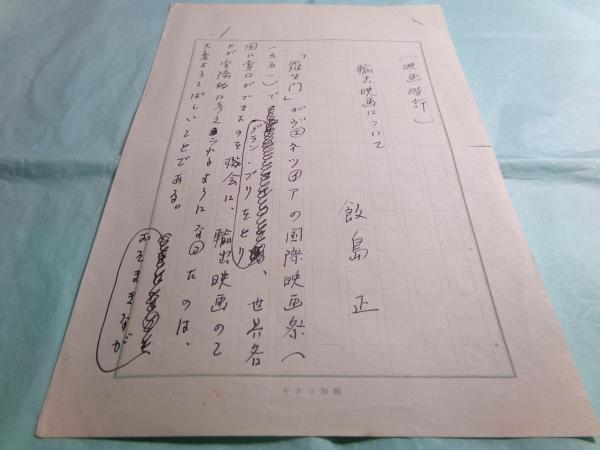 (映画時評)
輸出映画について
飯島正
「羅生門」がヴェネツィアの国際映画祭(
一九五一)でグラン・プリをとり、世界各
国に賣口ができたのを機会に、輸出映画のこ
とが実際的に考えられるようになったのは、
おそまきながら
大変よろこばしいことである。
キネマ旬報